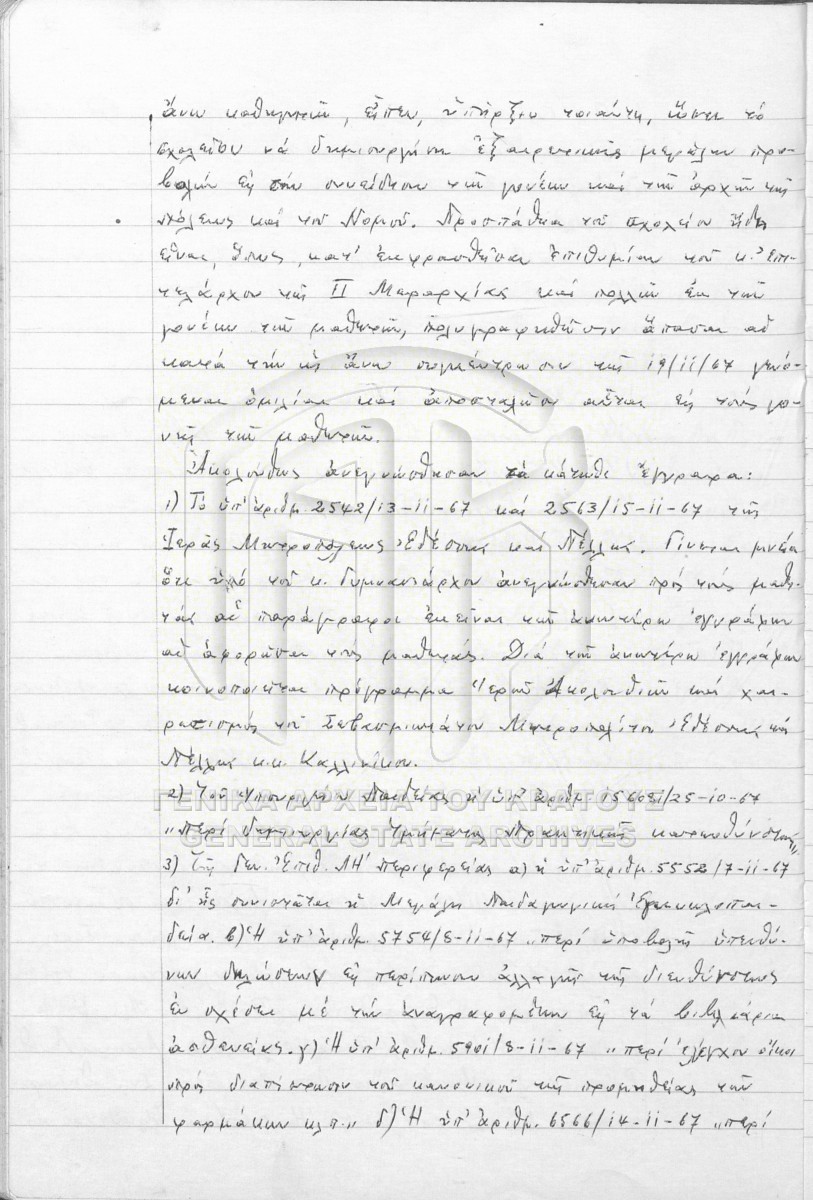 ἄνω καθηγητῶν, εἶπεν, ὑπῆρξεν τοιαύτη, ὥστε τό
σχολεῖον νά δημιουργήσῃ ἐξαιρετικῶς μεγάλην προ-
βολήν εἰς τήν συνείδησιν τῶν γονέων καί τῶν ἀρχῶν τῆς
πόλεως καί τοῦ Νομοῦ. Προσπάθεια τοῦ σχολείου ἤδη
εἶναι, ὅπως, κατ' ἐκφρασθεῖσαν ἐπιθυμίαν τοῦ κ. Ἐπι-
τελάρχου τῆς ΙΙ Μεραρχίας καί πολλῶν ἐκ τῶν
γονέων τῶν μαθητῶν, πολυγραφηθῶσιν ἅπασαι αἱ
κατά τήν ὡς ἄνω συγκέντρωσιν τῆς 19/11/67 γενό-
μεναι ὁμιλίαι καί ἀποσταλῶσιν αὗται εἰς τούς γο-
νεῖς τῶν μαθητῶν.
Ἀκολούθως ἀνεγνώσθησαν τά κάτωθι ἔγγραφα:
1) Τό ὑπ' ἀριθμ. 2542/13-11-67 καί 2563/15-11-67 τῆς
Ἱερᾶς Μητροπόλεως Ἐδέσσης καί Πέλλης. Γίνεται μνεία
ὅτι ὑπό τοῦ κ. Γυμνασιάρχου ἀνεγνώσθησαν πρός τούς μαθη-
τάς αἱ παράγραφοι ἐκεῖναι τῶν ἀνωτέρω ἐγγράφων
αἱ ἀφορῶσαι τούς μαθητάς. Διά τῶν ἀνωτέρω ἐγγράφων
κοινοποιεῖται πρόγραμμα Ἱερῶν Ἀκολουθιῶν καί χαι-
ρετισμός τοῦ Σεβασμιωτάτου Μητροπολίτου Ἐδέσσης καί
Πέλλης κ.κ. Καλλινίκου.
2) Τοῦ Ὑπουργείου Παιδείας ἡ ὑπ' ἀριθμ. /25-10-67
"Περί δημιουργίας Τμήματος Πρακτικῆς κατευθύνσεως"
3) Τῆς Γεν. Ἐπιθ. ΛΗ' περιφερείας α) ἡ ὑπ' ἀριθμ. 5552/7-11-67
δι' ἧς συνιστᾶται ἡ Μεγάλη Παιδαγωγική Ἐγκυκλοπαι-
δεία. β) Ἡ ὑπ' ἀριθμ. 5754/8-11-67 "περί ὑποβολῆς ὑπευθύ-
νων δηλώσεων εἰς περίπτωσιν ἀλλαγῆς τῆς διευθύνσεως
ἐν σχέσει μέ τήν ἀναγραφομένην εἰς τά βιβλιάρια
ἀσθενείας. γ) Ἡ ὑπ' ἀριθμ. 5901/8-11-67 "περί ἐλέγχου
πρός διαπίστωσιν τοῦ κανονικοῦ τῆς προμηθείας τῶν
φαρμάκων κλπ." δ) Ἡ ὑπ' ἀριθμ. 6566/14-11-67 "περί
ΓΕΝΙΚΑ ΑΡΧΕΙΑ ΤΟΥ ΚΡΑΤΟΥΣ
GENERAL STATE ARCHIVES